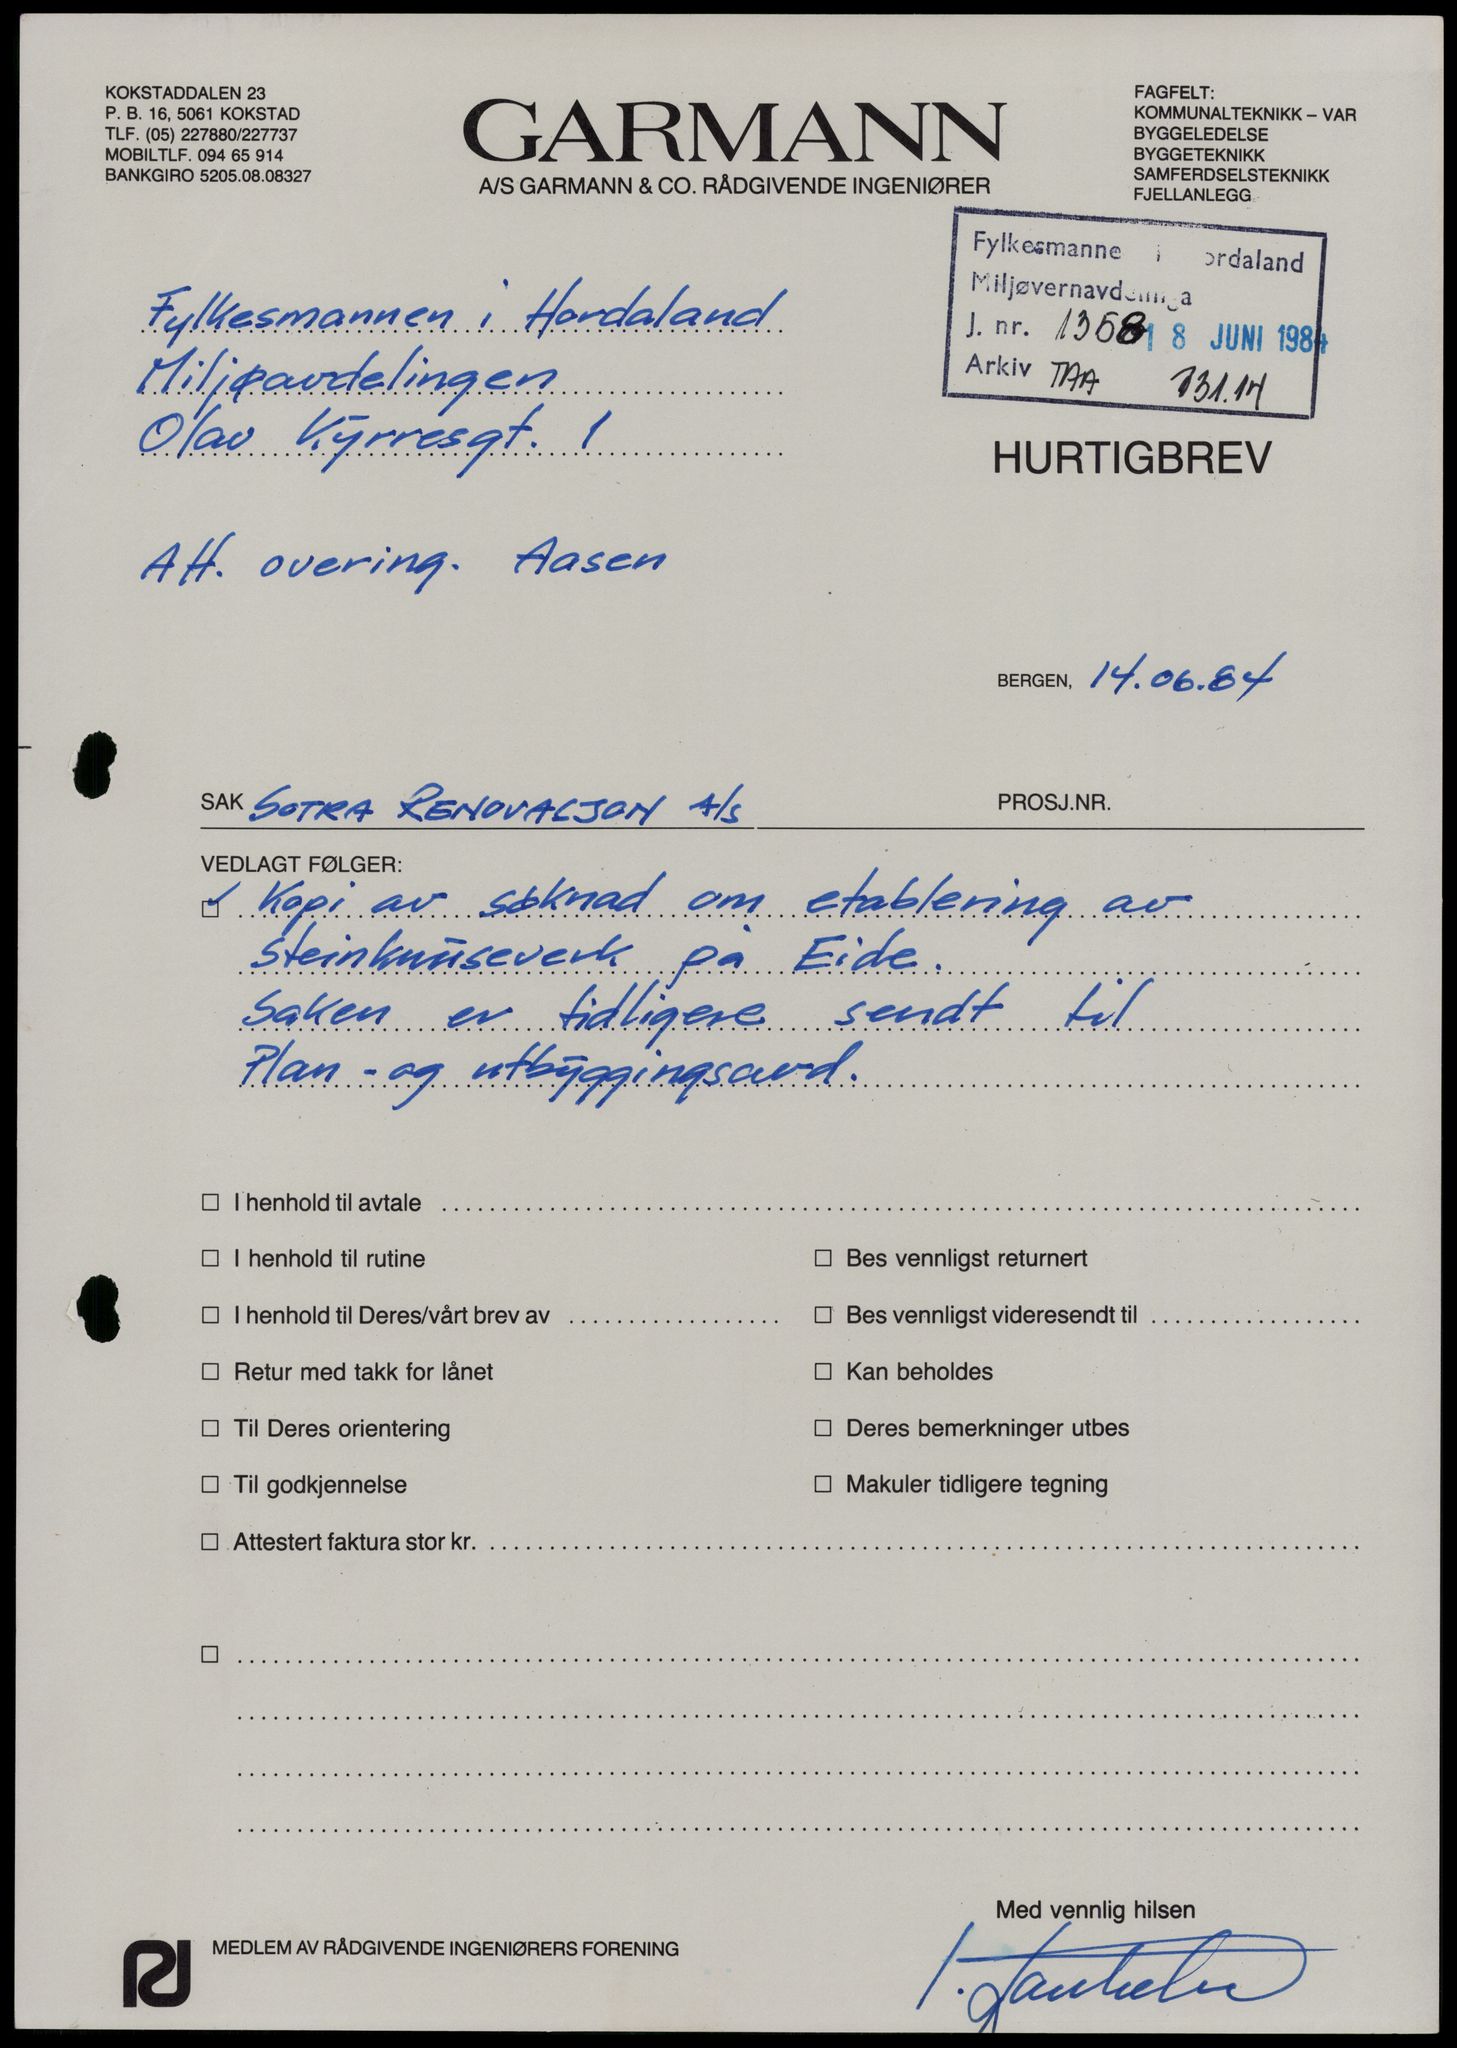 KOKSTADDALEN 23
P. B. 16, 5061 KOKSTAD
TLF. (05) 227880/227737
MOBILTLF. 094 65 914
BANKGIRO 5205.08.08327
GARMANN
A/S GARMANN & CO. RÅDGIVENDE INGENIØRER
FAGFELT:
KOMMUNALTEKNIKK – VAR
BYGGELEDELSE
BYGGETEKNIKK
SAMFERDSELSTEKNIKK
FJELLANLEGG
Fylkesmanne i ordaland
Miljøvernavdelinga
J. nr. 1368 18 JUNI 1984
Arkiv TAA 731.14
Fylkesmannen i Hordaland
Miljøavdelingen
Olav Kyrresgt. 1
HURTIGBREV
Att. overing. Aasen
BERGEN, 14.06.84
SAK SOTRA RENOVASJON A/S PROSJ.NR.
VEDLAGT FØLGER:
Kopi av søknad om etablering av
steinknuseverk på Eide.
Saken er tidligere sendt til
Plan- og utbyggingsavd.
I henhold til avtale
I henhold til rutine Bes vennligst returnert
I henhold til Deres/vårt brev av Bes vennligst videresendt til
Retur med takk for lånet Kan beholdes
Til Deres orientering Deres bemerkninger utbes
Til godkjennelse Makuler tidligere tegning
Attestert faktura stor kr.
Med vennlig hilsen
MEDLEM AV RÅDGIVENDE INGENIØRERS FORENING